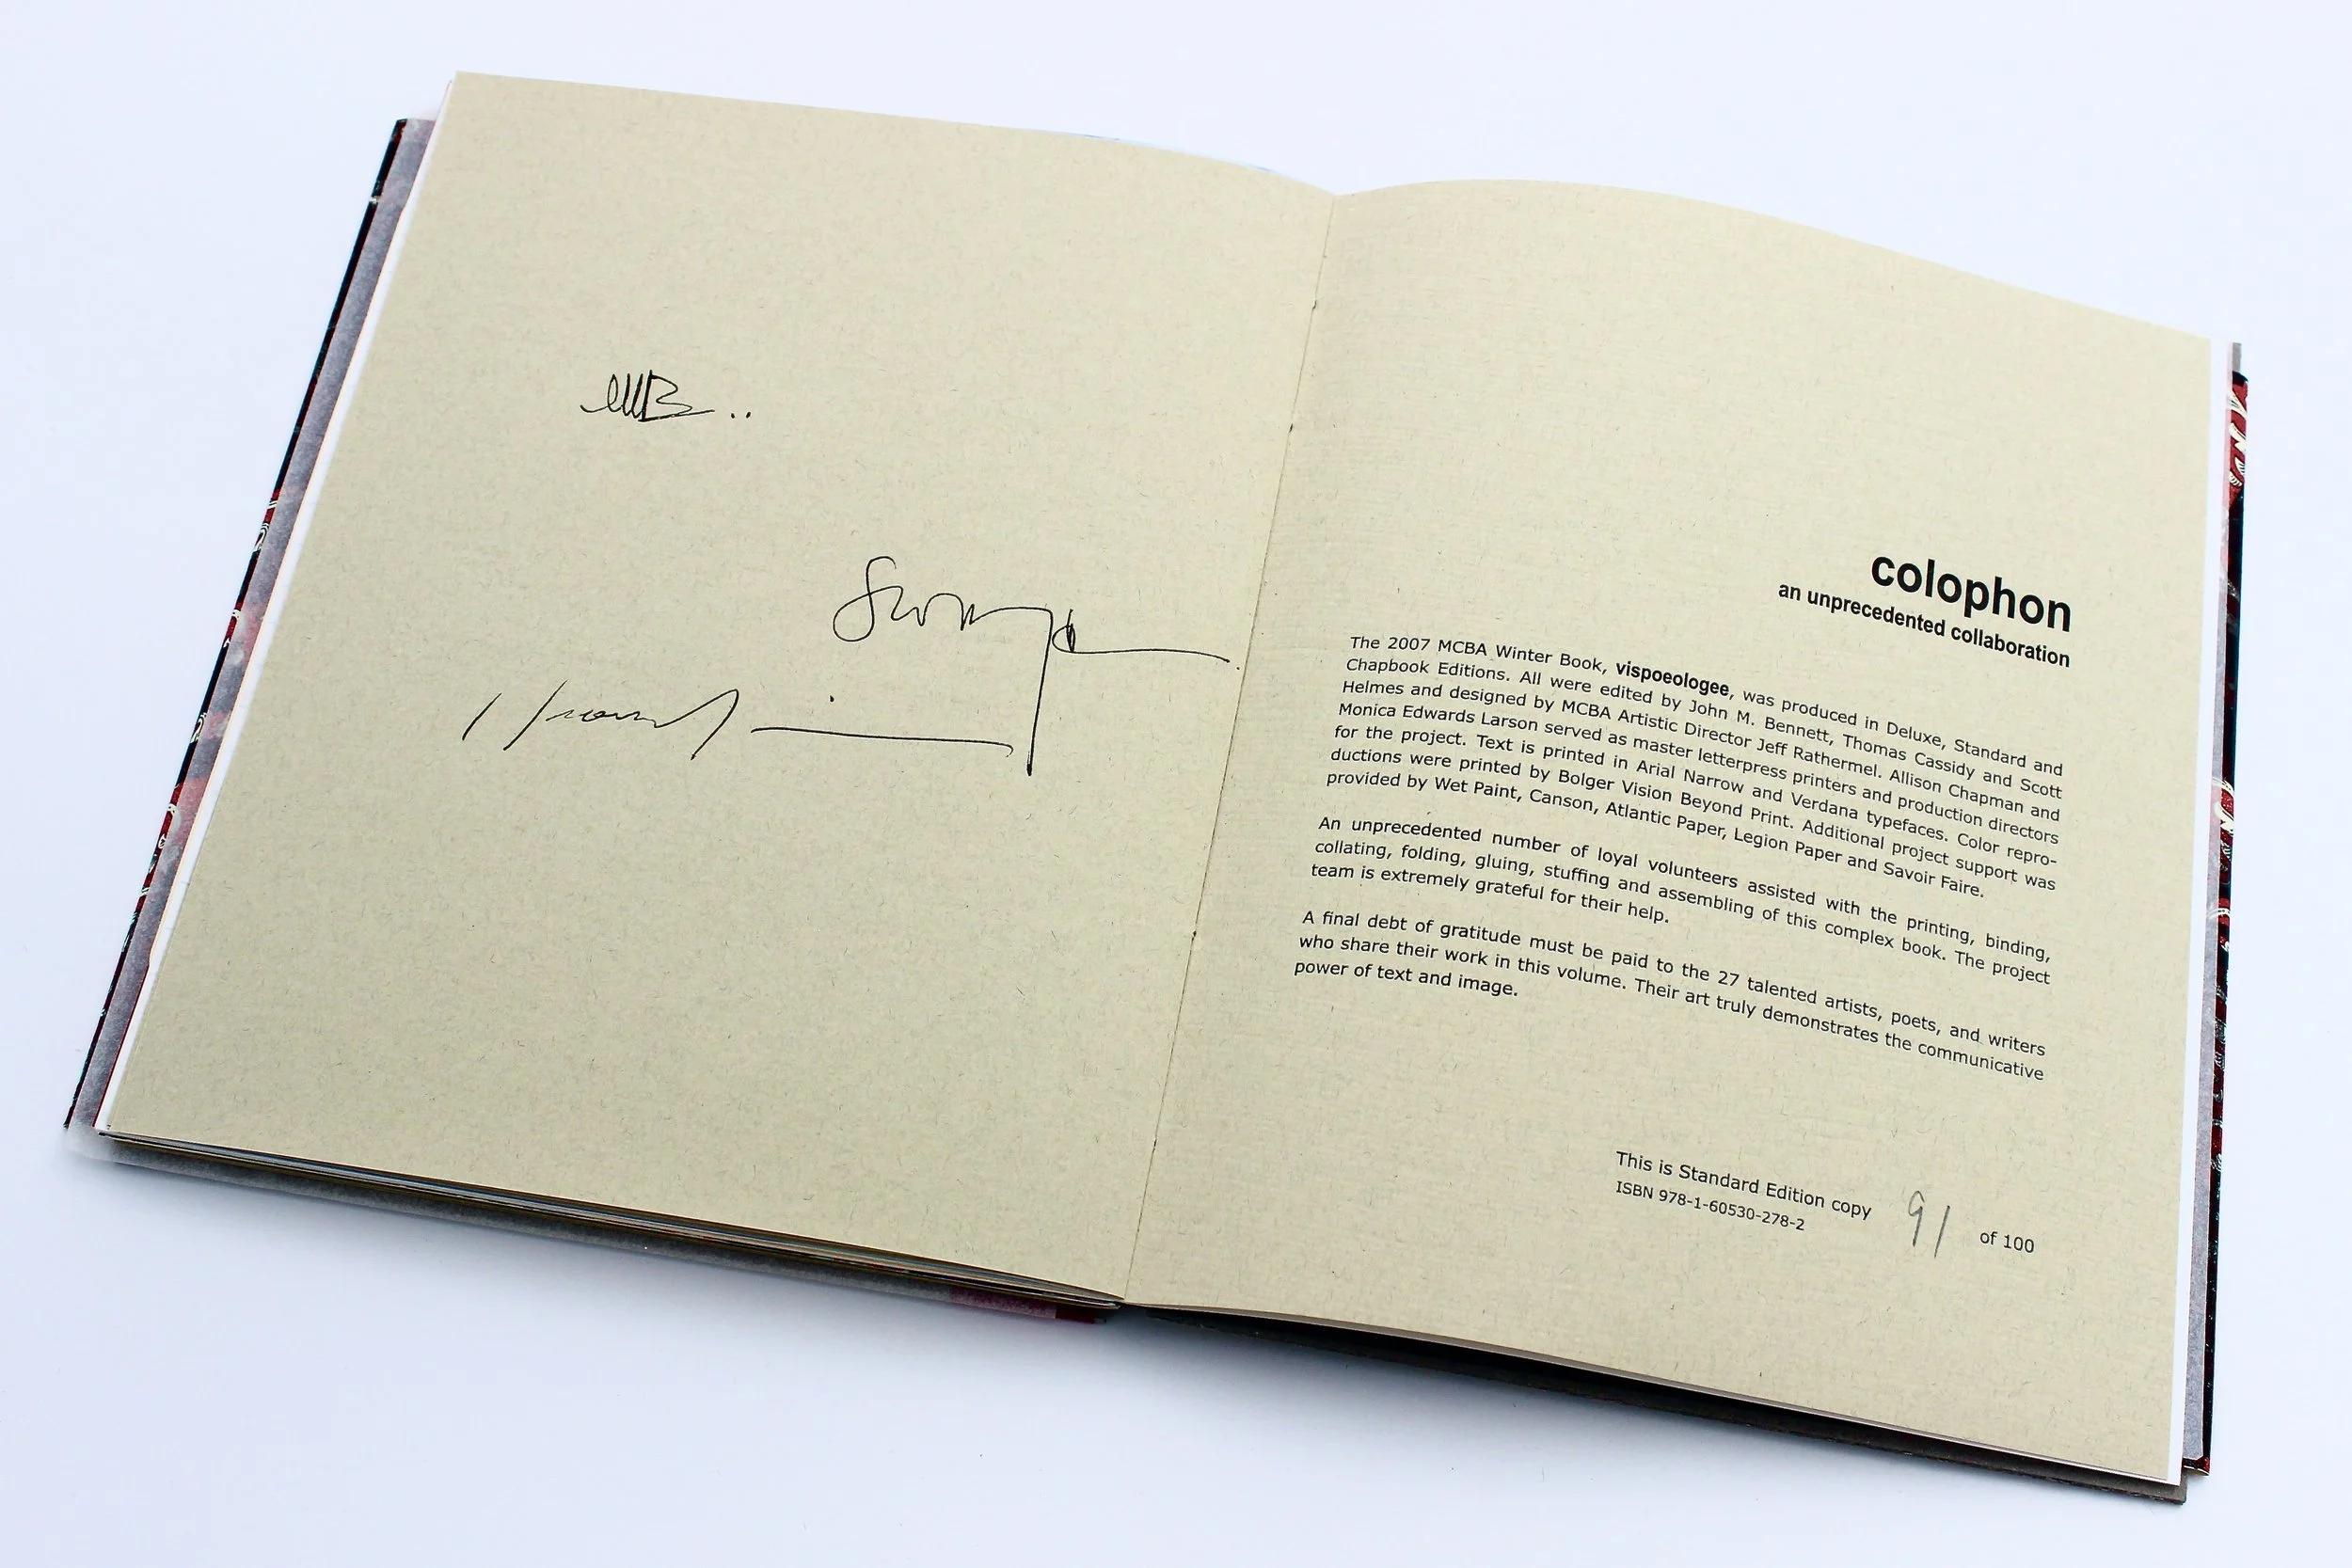 colophon
an unprecedented collaboration
The 2007 MCBA Winter Book, vispoeologee, was produced in Deluxe, Standard and
Chapbook Editions. All were edited by John M. Bennett, Thomas Cassidy and Scott
Helmes and designed by MCBA Artistic Director Jeff Rathermel. Allison Chapman and
Monica Edwards Larson served as master letterpress printers and production directors
for the project. Text is printed in Arial Narrow and Verdana typefaces. Color repro-
ductions were printed by Bolger Vision Beyond Print. Additional project support was
provided by Wet Paint, Canson, Atlantic Paper, Legion Paper and Savoir Faire.
An unprecedented number of loyal volunteers assisted with the printing, binding,
collating, folding, gluing, stuffing and assembling of this complex book. The project
team is extremely grateful for their help.
A final debt of gratitude must be paid to the 27 talented artists, poets, and writers
who share their work in this volume. Their art truly demonstrates the communicative
power of text and image.
This is Standard Edition copy 91 of 100
ISBN 978-1-60530-278-2